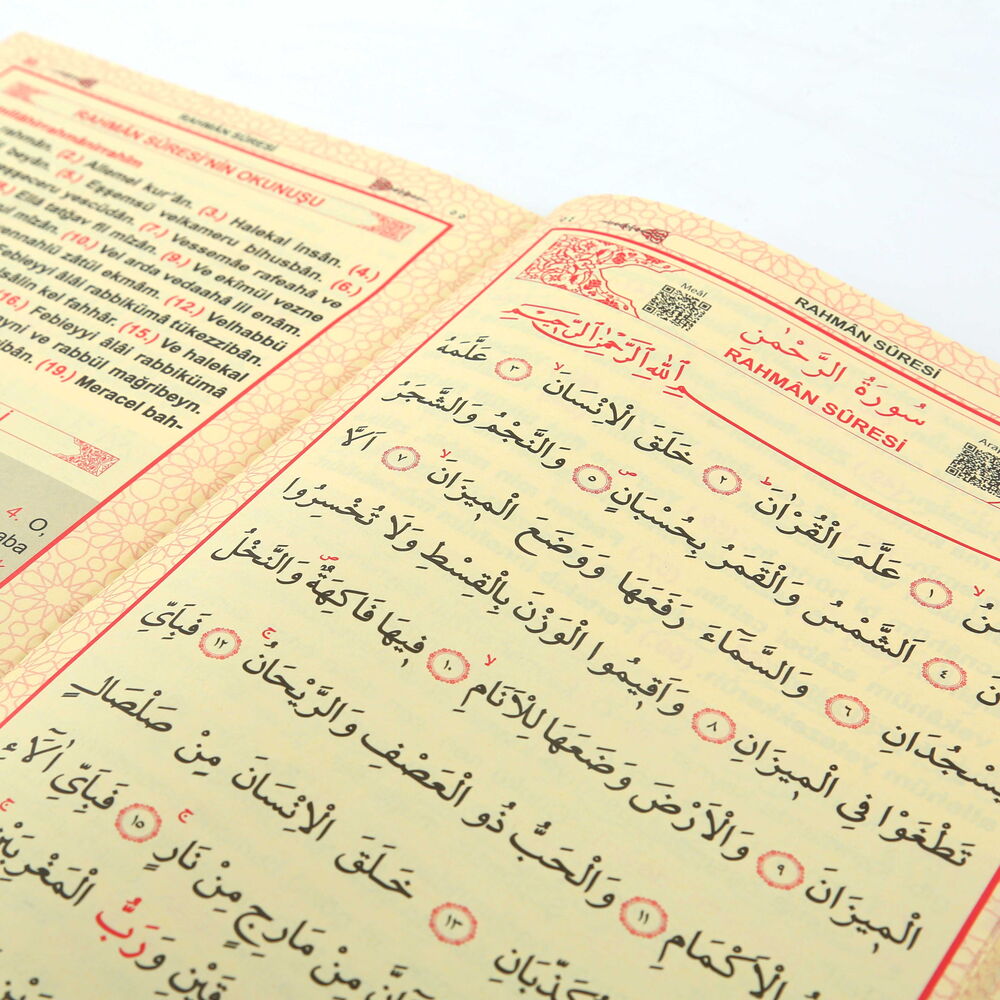 RAHMÂN SÛRESİ
RAHMÂN SÛRESİ'NİN OKUNUŞU
rahmân. (2.) Allemel kur'ân. (3.) Halekal insân. (4.)
beyân. (5.) Eşşemsü velkameru bihusbân. (6.)
yescüdân. (7.) Vessemâe rafeahâ ve
Ellâ tatğav fil mîzân. (9.) Ve ekîmül vezne
mîzân. (10.) Vel arda vedaahâ lil enâm.
zâtül ekmâm. (12.) Velhabbü
Febieyyi âlâi rabbikümâ tükezzibân.
kel fahhâr. (15.) Ve halekal
(16.) Febieyyi âlâi rabbikümâ
ve rabbül mağribeyn.
(19.) Meracel bah-
4. O,
aba
RAHMÂN SÛRESİ
Meâl
سُورَةُ الرَّحْمٰنِ
RAHMÂN SÛRESİ
بِسْمِ اللّٰهِ الرَّحْمٰنِ الرَّحِيمِ
١ عَلَّمَ الْقُرْاٰنَ ٢ خَلَقَ الْاِنْسَانَ ٣ عَلَّمَهُ
٤ اَلشَّمْسُ وَالْقَمَرُ بِحُسْبَانٍ ٥ وَالنَّجْمُ وَالشَّجَرُ
يَسْجُدَانِ ٦ وَالسَّمَٓاءَ رَفَعَهَا وَوَضَعَ الْمِيزَانَ ٧ اَلَّا
تَطْغَوْا فِي الْمِيزَانِ ٨ وَاَقِيمُوا الْوَزْنَ بِالْقِسْطِ وَلَا تُخْسِرُوا
الْمِيزَانَ ٩ وَالْاَرْضَ وَضَعَهَا لِلْاَنَامِ ١٠ فِيهَا فَاكِهَةٌ وَالنَّخْلُ
الْاَكْمَامِ ١١ وَالْحَبُّ ذُو الْعَصْفِ وَالرَّيْحَانُ ١٢ فَبِاَيِّ
تُكَذِّبَانِ ١٣ خَلَقَ الْاِنْسَانَ مِنْ صَلْصَالٍ
مِنْ مَارِجٍ مِنْ نَارٍ ١٥ فَبِاَيِّ اٰلَٓاءِ
وَرَبُّ الْمَغْرِبَيْنِ